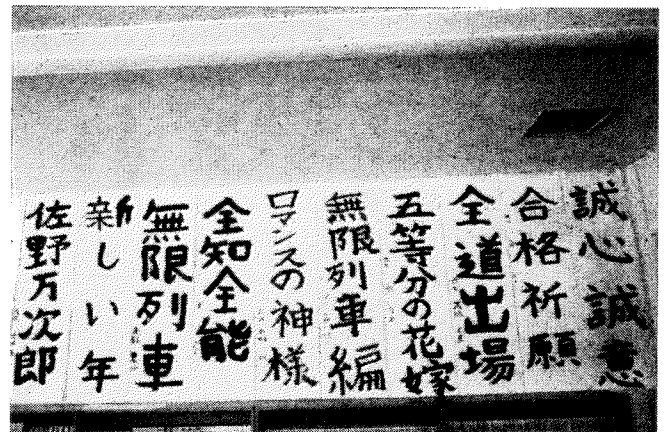 誠心誠意
合格祈願
全道出場
五等分の花嫁
無限列車編
ロマンスの神様
全知全能
無限列車
新しい年
佐野万次郎